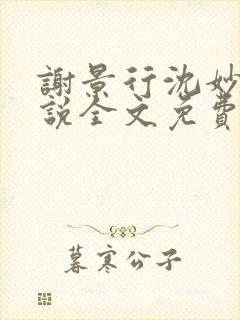 謝景行沈妙
說全文免費
暮寒公子